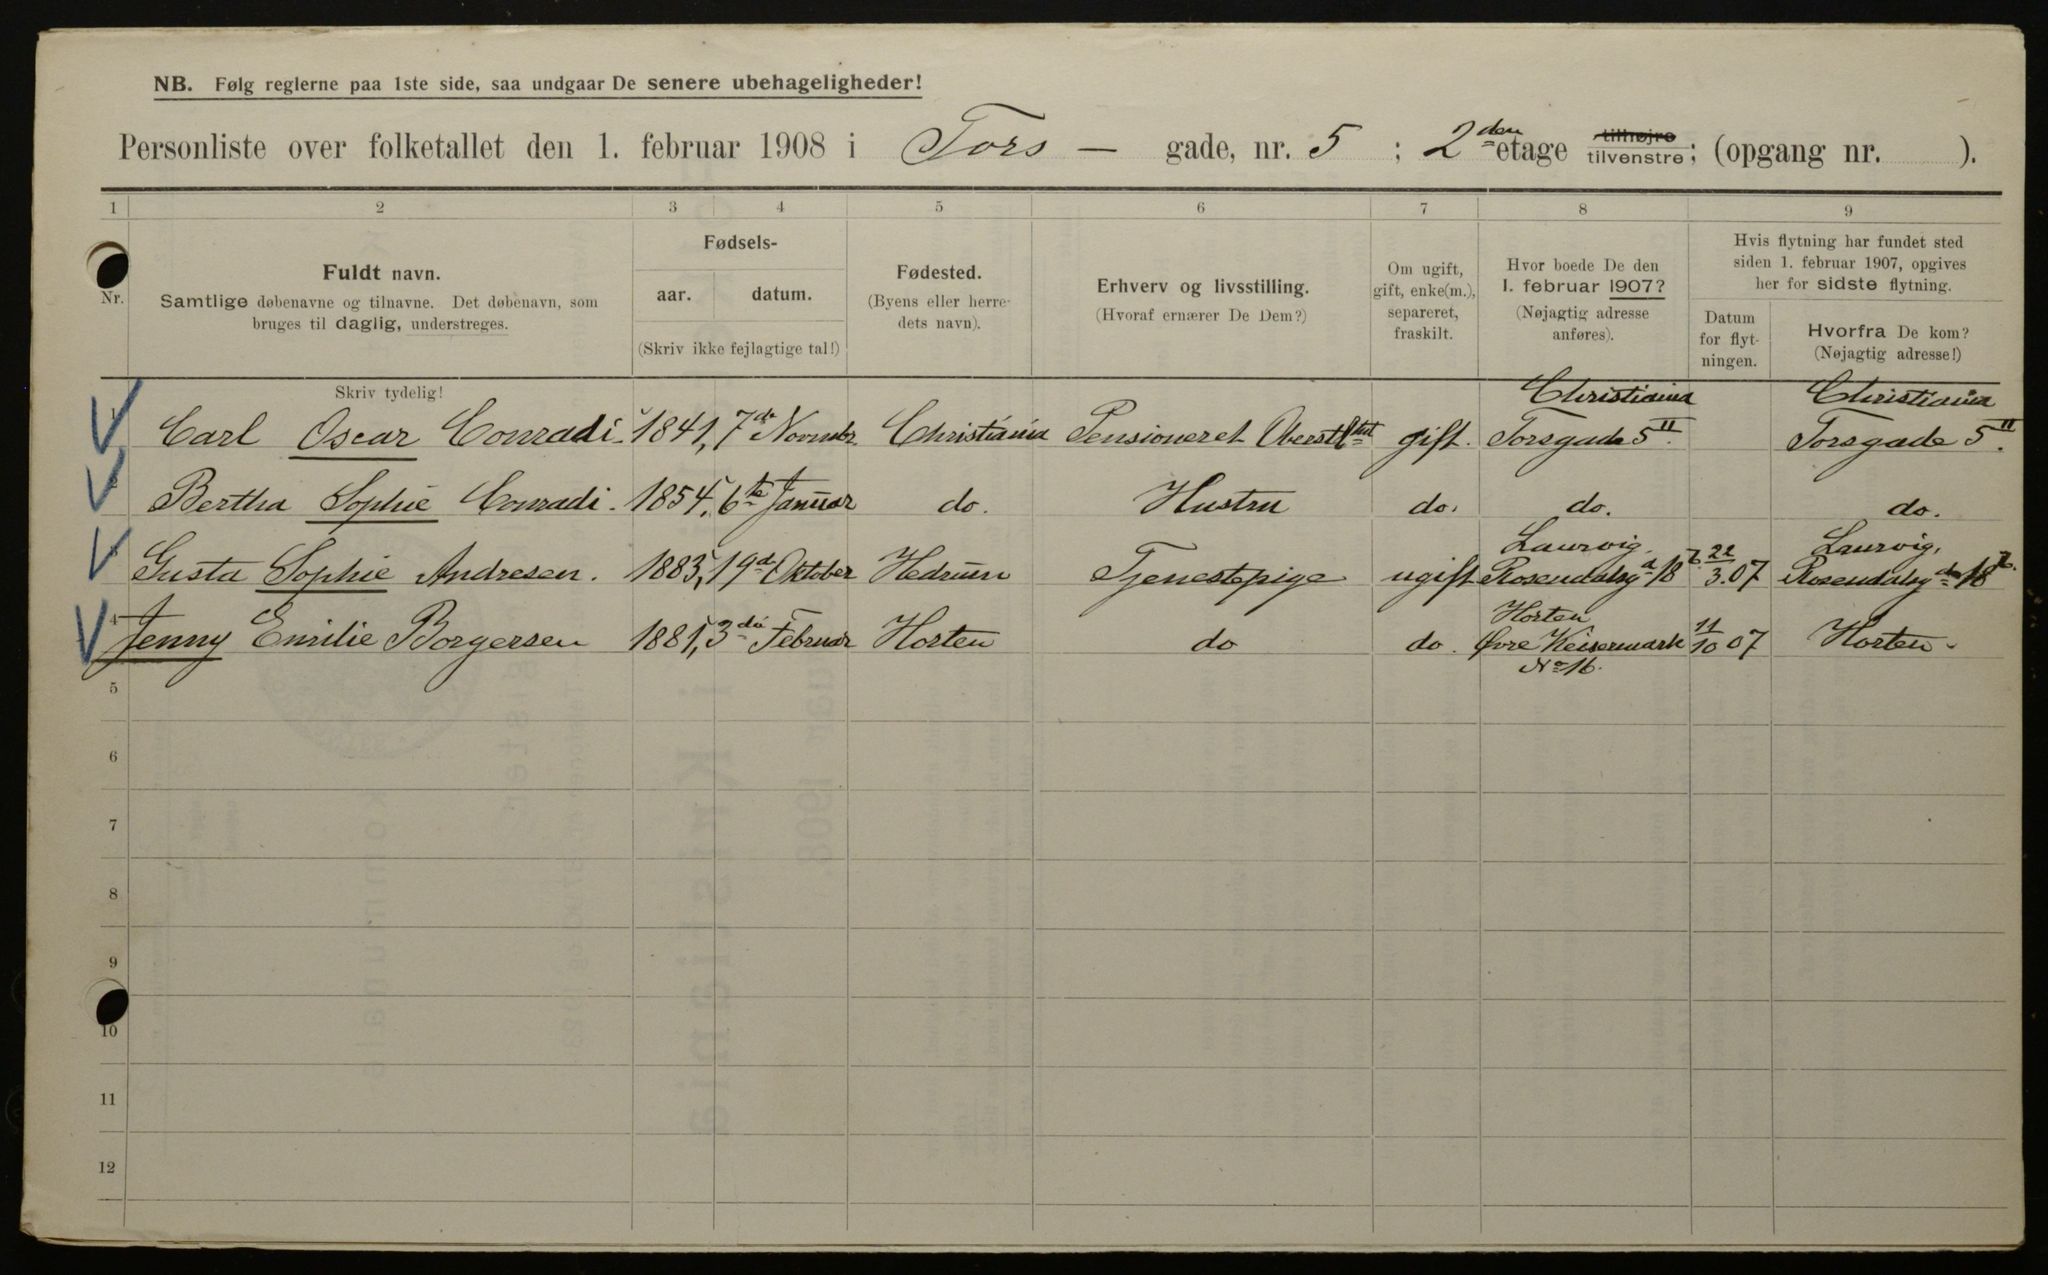 NB. Følg reglerne paa 1ste side, saa undgaar De senere ubehageligheder!
Personliste over folketallet den 1. februar 1908 i Tors — gade, nr. 5 ; 2den etage tilhøjre tilvenstre; (opgang nr. ).
1 2 3 4 5 6 7 8 9
Nr.
Fuldt navn.
Samtlige døbenavne og tilnavne. Det døbenavn, som
bruges til daglig, understreges.
Fødsels-
aar. datum.
(Skriv ikke fejlagtige tal!)
Fødested.
(Byens eller herre-
dets navn).
Erhverv og livsstilling.
(Hvoraf ernærer De Dem?)
Om ugift,
gift, enke(m.),
separeret,
fraskilt.
Hvor boede De den
1. februar 1907?
(Nøjagtig adresse
anføres).
Hvis flytning har fundet sted
siden 1. februar 1907, opgives
her for sidste flytning.
Datum
for flyt-
ningen.
Hvorfra De kom?
(Nøjagtig adresse!)
Skriv tydelig!
Christiania Christiania
1 Carl Oscar Conradi. 1841, 7de Novembr. Christiania Pensioneret Oberstltnt gift. Torsgade 5 II. Torsgade 5 II.
2 Bertha Sophie Conradi. 1854, 6te Januar do. Hustru do. do. do.
Laurvig. Laurvig,
3 Gusta Sophie Andresen. 1883, 19d Oktober Hedrum Tjenestepige ugift Rosendalsgd 18 b. 22/3.07 Rosendalsgd 18 b.
Horten
4 Jenny Emilie Borgersen 1881, 3die Februar Horten do do. Øvre Keisermark 11/10 07 Horten.
No 16.
5
6
7
8
9
10
11
12